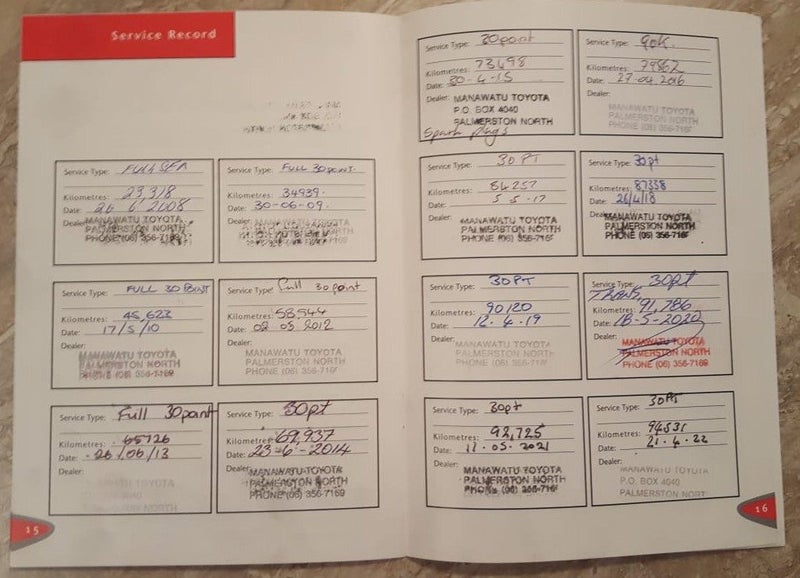 Service Record
Service Type: FULL SFA
Kilometres: 23,318
Date: 26 6 2008
Dealer:
MANAWATU TOYOTA
PALMERSTON NORTH
PHONE (06) 356-716
Service Type: FULL 30 point.
Kilometres: 34939.
Date: 30-06-09.
Dealer:
Service Type: FULL 30 POINT
Kilometres: 45,623
Date: 17/5/10
Dealer:
MANAWATU TOYOTA
PALMERSTON NORTH
PHONE (06) 356-7169
Service Type: Full 30 point
Kilometres: 58544
Date: 02 03 2012
Dealer:
MANAWATU TOYOTA
PALMERSTON NORTH
PHONE (06) 356-716
Service Type: Full 30 point
Kilometres: 65726
Date: 26/06/13
Dealer:
Service Type: 30pt
Kilometres: 69,937
Date: 23-6-2014
Dealer:
MANAWATU TOYOTA
PALMERSTON NORTH
PHONE (06) 356-7169
15
Service Type: 30 point
Kilometres: 73498
Date: 30-4-15
Dealer: MANAWATU TOYOTA
P.O. BOX 4040
PALMERSTON NORTH
Spark plugs
Service Type: 90K.
Kilometres: 79862
Date: 27.04.2016
Dealer:
MANAWATU TOYOTA
PALMERSTON NORTH
PHONE (06) 356-716
Service Type: 30 PT
Kilometres: 84257
Date: 5.5.17
Dealer:
MANAWATU TOYOTA
PALMERSTON NORTH
PHONE (06) 356-716
Service Type: 30pt
Kilometres: 87358
Date: 26/4/18
Dealer:
MANAWATU TOYOTA
PALMERSTON NORTH
PHONE (06) 356-716
Service Type: 30 PT
Kilometres: 90120
Date: 12.4.19
Dealer:
MANAWATU TOYOTA
PALMERSTON NORTH
PHONE (06) 356-716
Service Type: 30pt
TRANS
Kilometres: 91,786
Date: 18-5-2020
Dealer:
MANAWATU TOYOTA
PALMERSTON NORTH
PHONE (06) 356-716
Service Type: 30pt
Kilometres: 92,725
Date: 12.05.2021
Dealer:
MANAWATU TOYOTA
PALMERSTON NORTH
PHONE (06) 356-716
Service Type: 30 PT
Kilometres: 94531
Date: 21.4.22
Dealer:
MANAWATU TOYOTA
P.O. BOX 4040
PALMERSTON NORTH
16